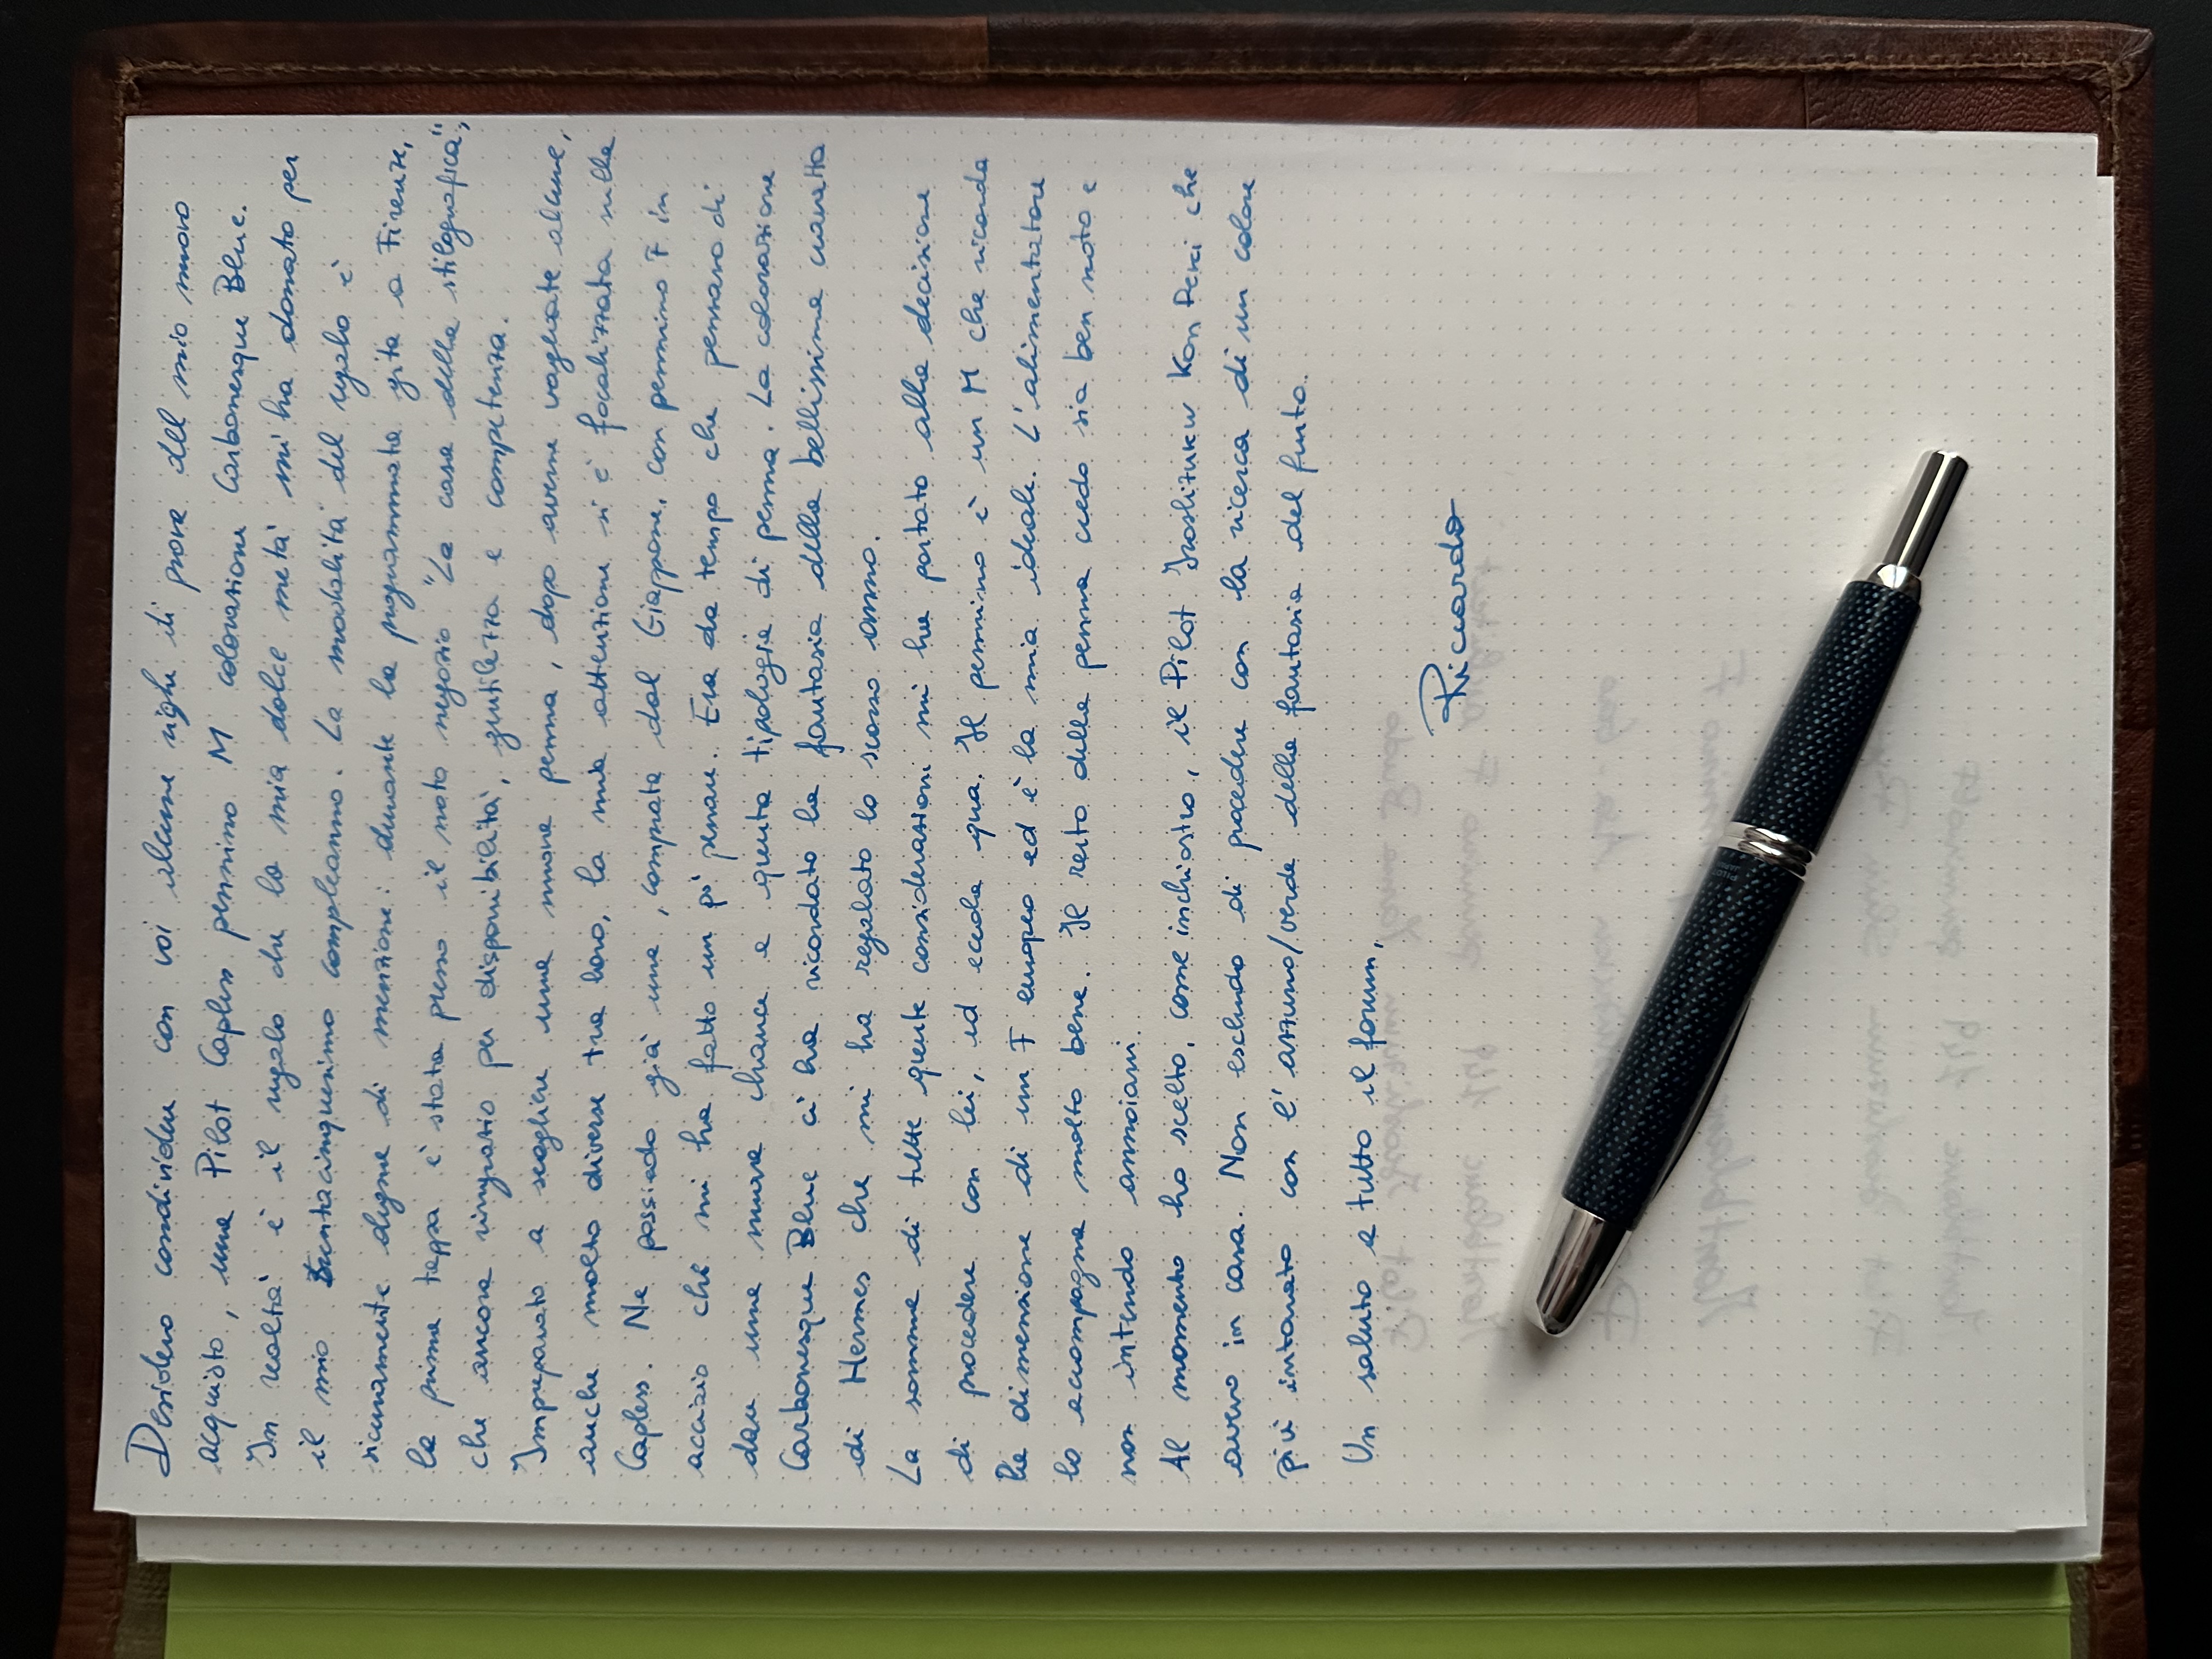 Desidero condividere con voi alcune righe di prova del mio nuovo
acquisto, una Pilot Capless pennino M colorazione Carbonesque Blue.
In realtà è il regalo che la mia dolce metà mi ha donato per
il mio cinquesimo compleanno. La modalità del regalo è
sicuramente degna di menzione: durante la programmata gita a Firenze,
la prima tappa è stata presso il noto negozio "La casa della stilografica",
che ancora ringrazio per disponibilità, gentilezza e competenza.
Impreparato a scegliere una nuova penna, dopo averne vagliate alcune,
anche molto diverse tra loro, la mia attenzione si è focalizzata sulla
Capless. Ne possiedo già una, comprata dal Giappone, con pennino F in
acciaio che mi ha fatto un pò penare. Era da tempo che pensavo di
dare una nuova chance a questa tipologia di penna. La colorazione
Carbonesque Blue ci ha ricordato la fantasia della bellissima cravatta
di Hermes che mi ha regalato lo scorso anno.
La somma di tutte queste considerazioni mi ha portato alla decisione
di procedere con lei, ed eccola qua. Il pennino è un M che ricorda
la dimensione di un F europeo ed è la mia ideale. L'alimentatore
lo accompagna molto bene. Il resto della penna credo sia ben noto e
non intendo annoiarvi.
Al momento ho scelto, come inchiostro, il Pilot Iroshizuku Kon Peki che
avevo in casa. Non escludo di procedere con la ricerca di un colore
più intonato con l'azzurro/verde della fantasia del fusto.
Un saluto a tutto il forum,
Riccardo
PILOT